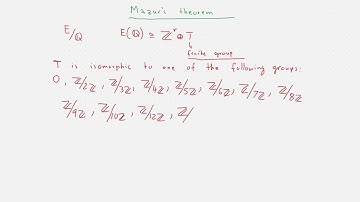 Mazur's theorem
E/Q E(Q) ≅ ℤ^r ⊕ T
finite group
T is isomorphic to one of the following groups:
0, ℤ/2ℤ, ℤ/3ℤ, ℤ/4ℤ, ℤ/5ℤ, ℤ/6ℤ, ℤ/7ℤ, ℤ/8ℤ
ℤ/9ℤ, ℤ/10ℤ, ℤ/12ℤ, ℤ/